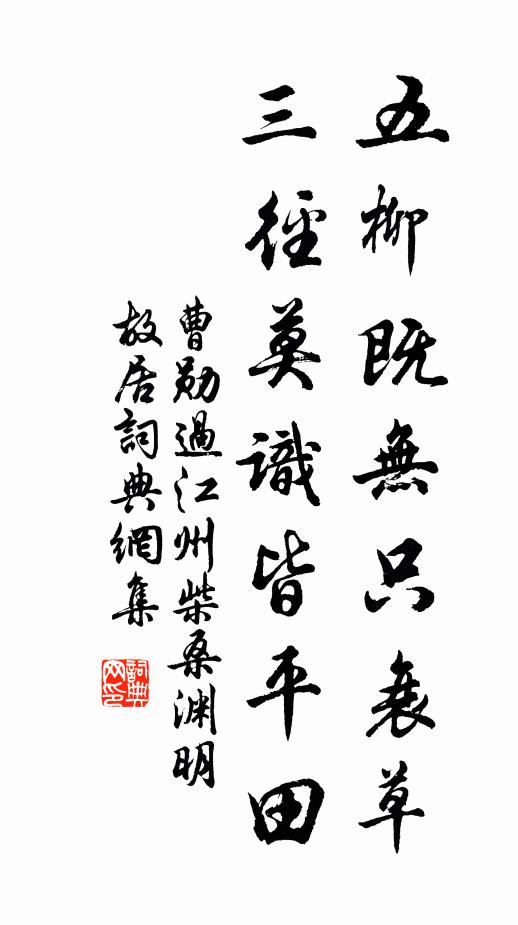 五柳既無只衰草
三徑莫識皆平田
曹勛過江州柴桑渊明
故居詞典網集
詞典网印